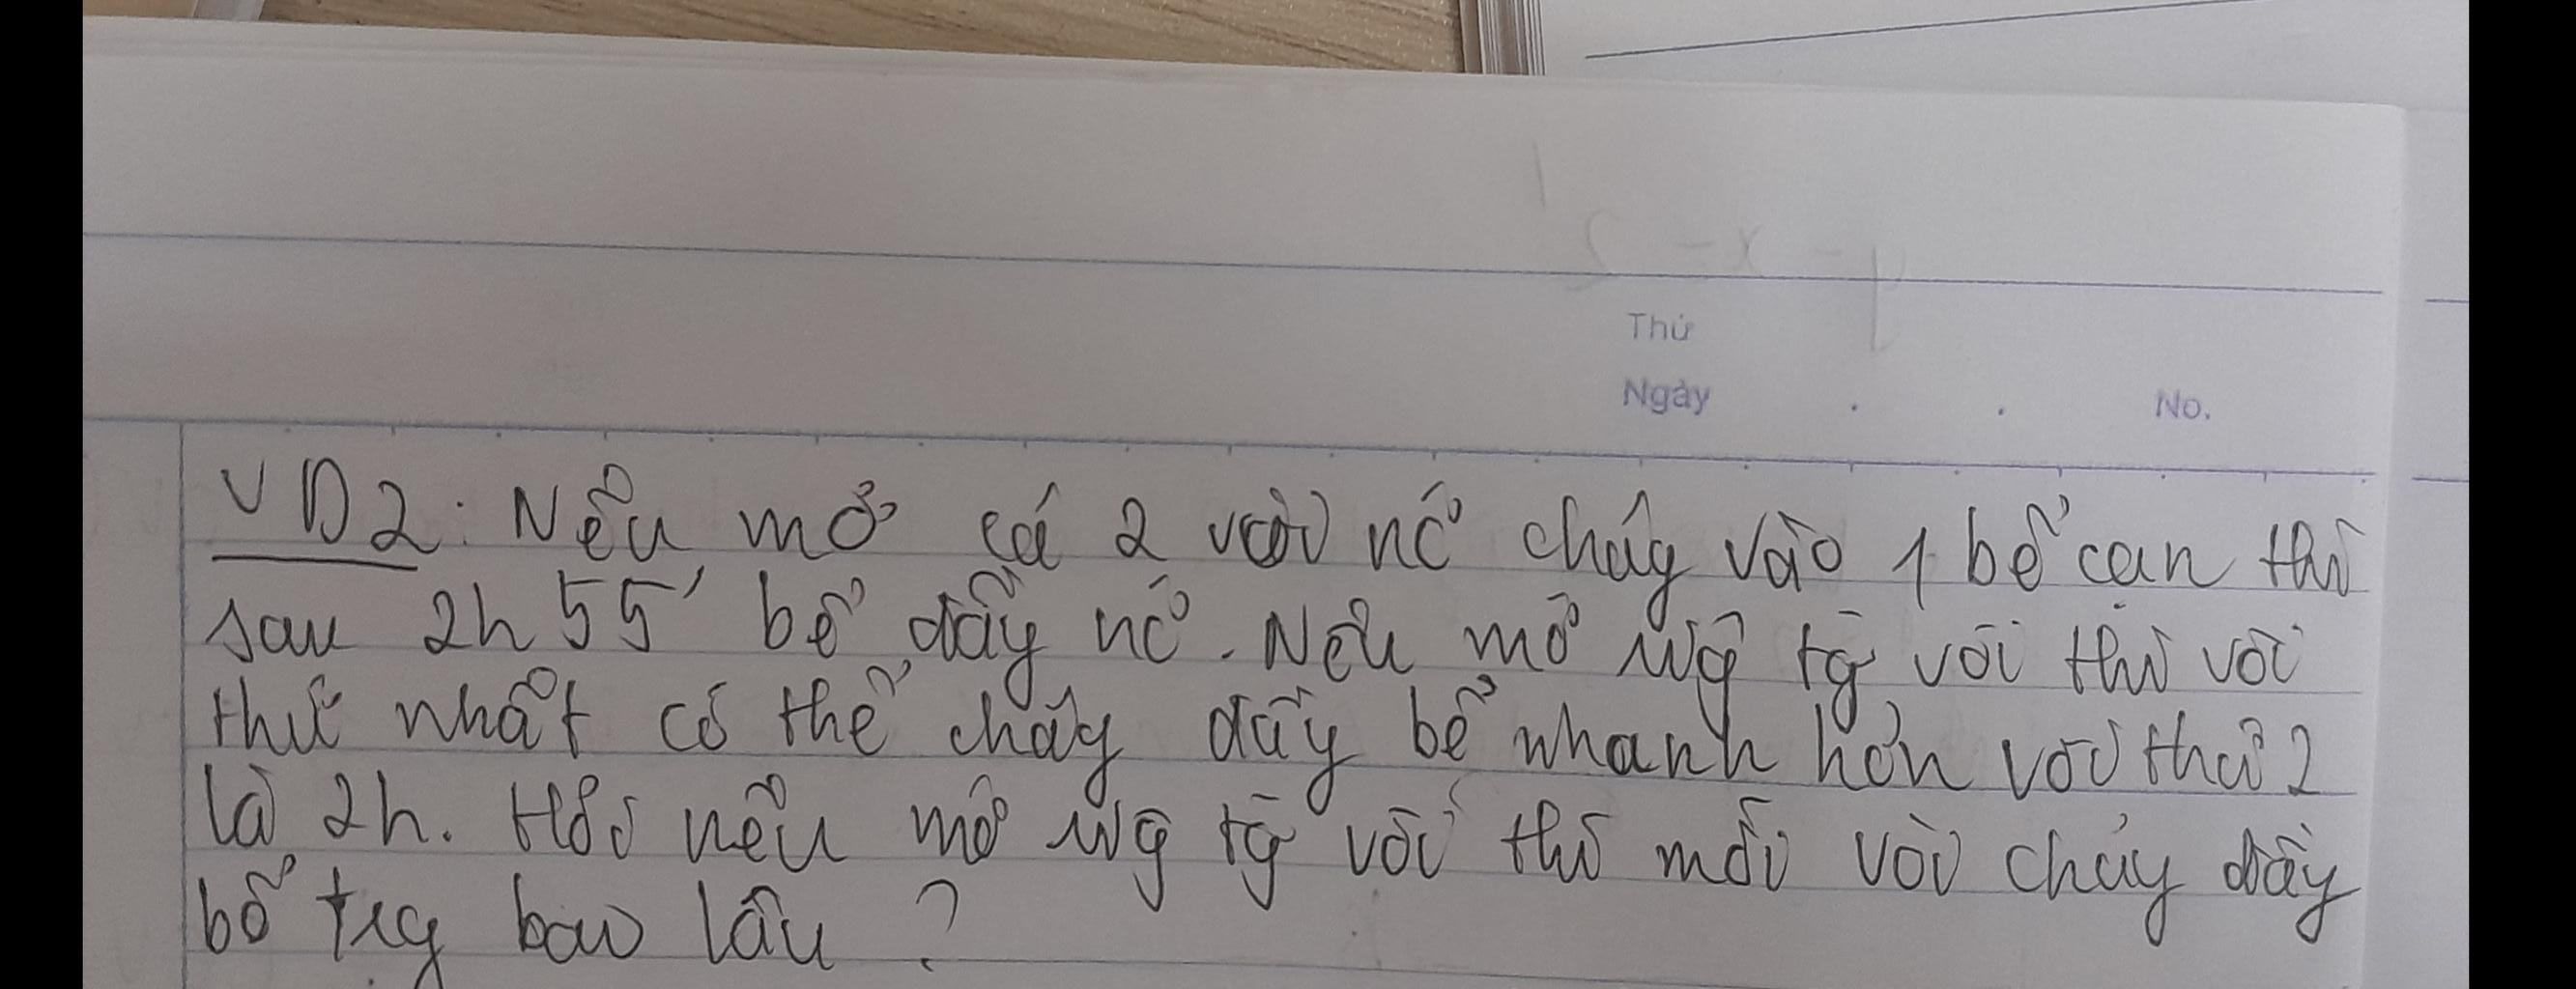 Thứ
Ngày . . No.
VD2: Nếu mở cả 2 vòi nc chảy vào 1 bể cạn thì
sau 2h 55' bể đầy nc. Nếu mở riêng vòi thì vòi
thứ nhất có thể chảy đầy bể nhanh hơn vòi thứ 2
là 2h. Hỏi nếu mở riêng vòi thì mỗi vòi chảy đầy
bể trg bao lâu ?